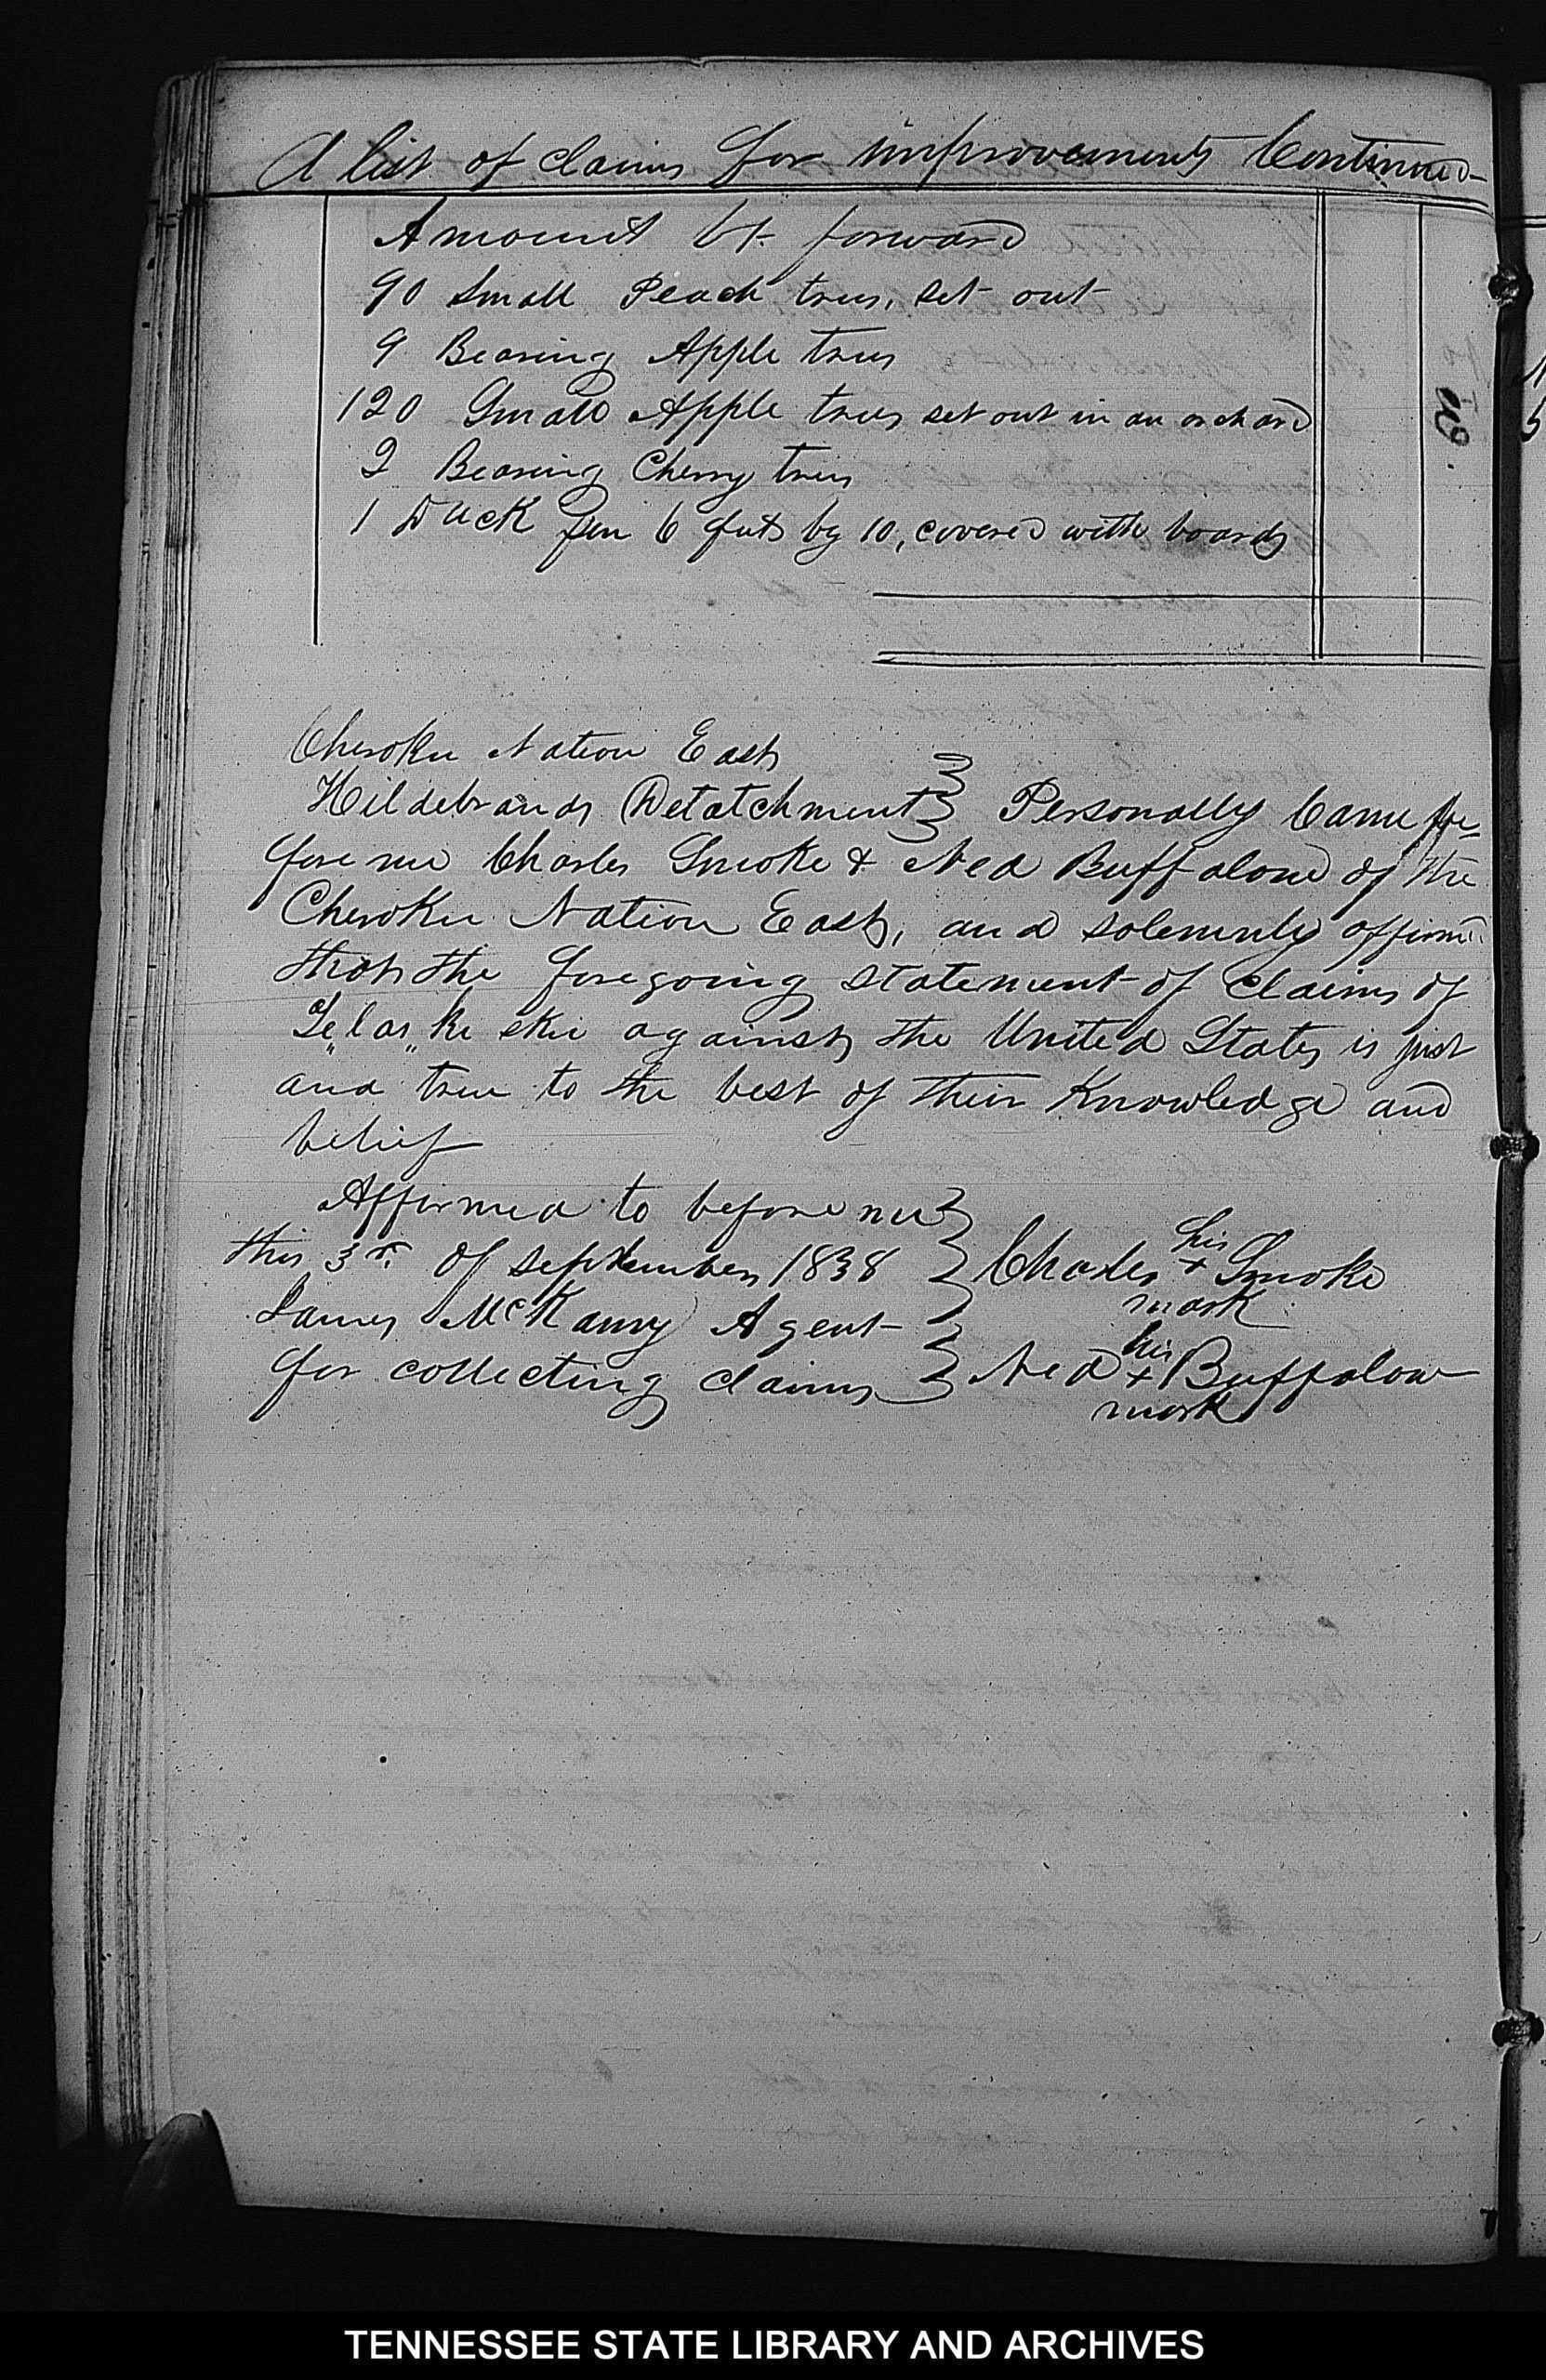 A list of claims for improvements Continued
Amount bt. forward
90 Small Peach trees, set out
9 Bearing Apple trees
120 Small Apple trees set out in an orchard
2 Bearing Cherry trees
1 Duck pen 6 feet by 10, covered with boards
Cherokee Nation East
Hildebrands Detatchment } Personally Came be-
fore me Charles Smoke & Ned Buffalow of the
Cherokee Nation East, and solemnly affirm
that the foregoing statement of Claims of
Te"las"ke skee against the United States is just
and true to the best of their Knowledge and
belief
Affirmed to before me
this 3rd of September 1838 } Charles his x mark Smoke
James McKamy Agent
for collecting claims } Ned his x mark Buffalow
TENNESSEE STATE LIBRARY AND ARCHIVES